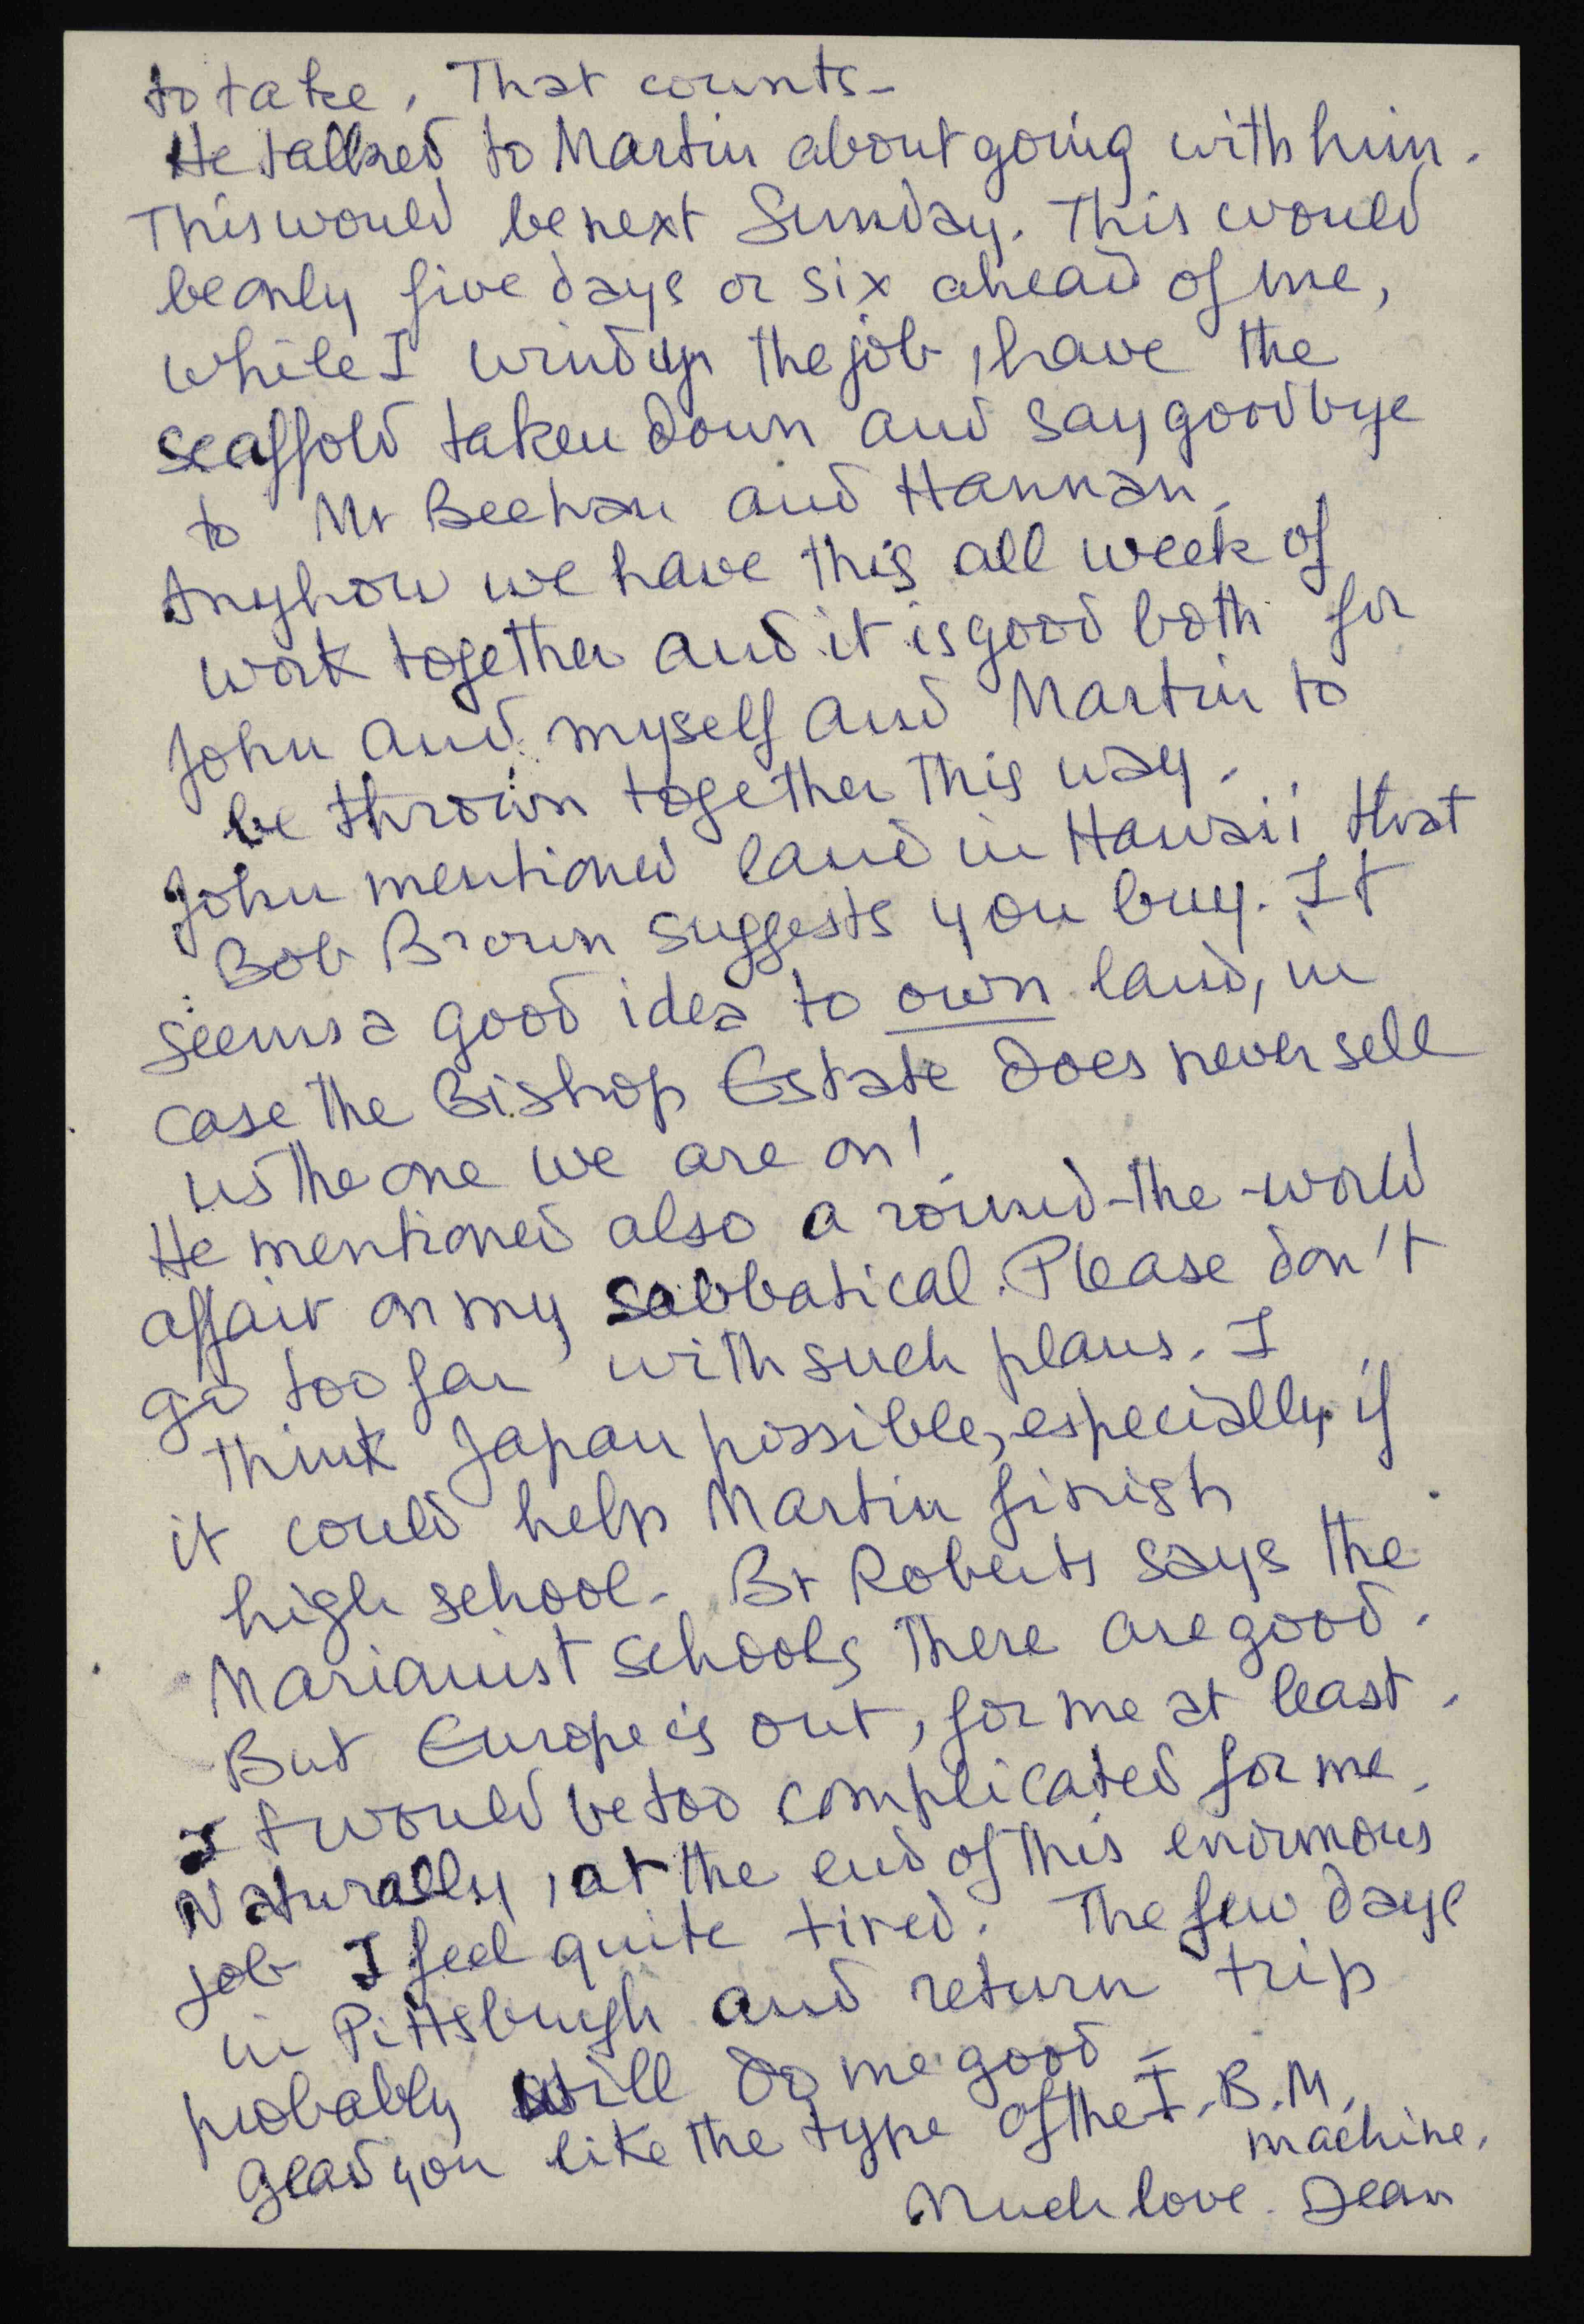 to take. That counts-
He talked to Martin about going with him.
This would be next Sunday. This would
be only five days or six ahead of me,
while I wind up the job, have the
scaffold taken down and say goodbye
to Mr Beehan and Hannan.
Anyhow we have this all week of
work together and it is good both for
John and myself and Martin to
be thrown together this way.
John mentioned land in Hawaii that
Bob Brown suggests you buy. It
seems a good idea to own land, in
case the Bishop Estate does never sell
us the one we are on!
He mentioned also a round-the-world
affair on my sabbatical. Please don't
go too far with such plans. I
think Japan possible, especially if
it could help Martin finish
high school. Br Roberts says the
Marianist schools there are good.
But Europe is out, for me at least.
It would be too complicated for me.
Naturally, at the end of this enormous
job I feel quite tired. The few days
in Pittsburgh and return trip
probably will do me good-
Glad you like the type of the I.B.M.
machine.
Much love. Jean